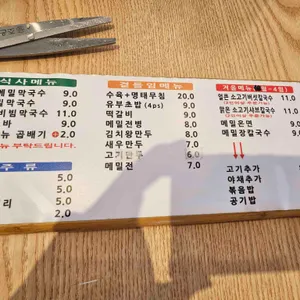 식사메뉴
메밀막국수 9,0
막국수 9,0
비빔막국수 11,0
바 9,0
뉴 곱배기 +2,0
뉴 부탁드립니다.
주류
5,0
5,0
리 5,0
2,0
곁들임메뉴
수육+명태무침 20,0
유부초밥 (4ps) 9,0
떡갈비 9,0
메밀전병 8,0
김치왕만두 8,0
새우만두 7,0
고기만두 7,0
메밀전 7,0
겨울메뉴
얼큰 소고기버섯칼국수 11,0
맑은 소고기샤브칼국수 11,0
메밀온면 9,0
메밀장칼국수 9,0
고기추가
야채추가
볶음밥
공기밥